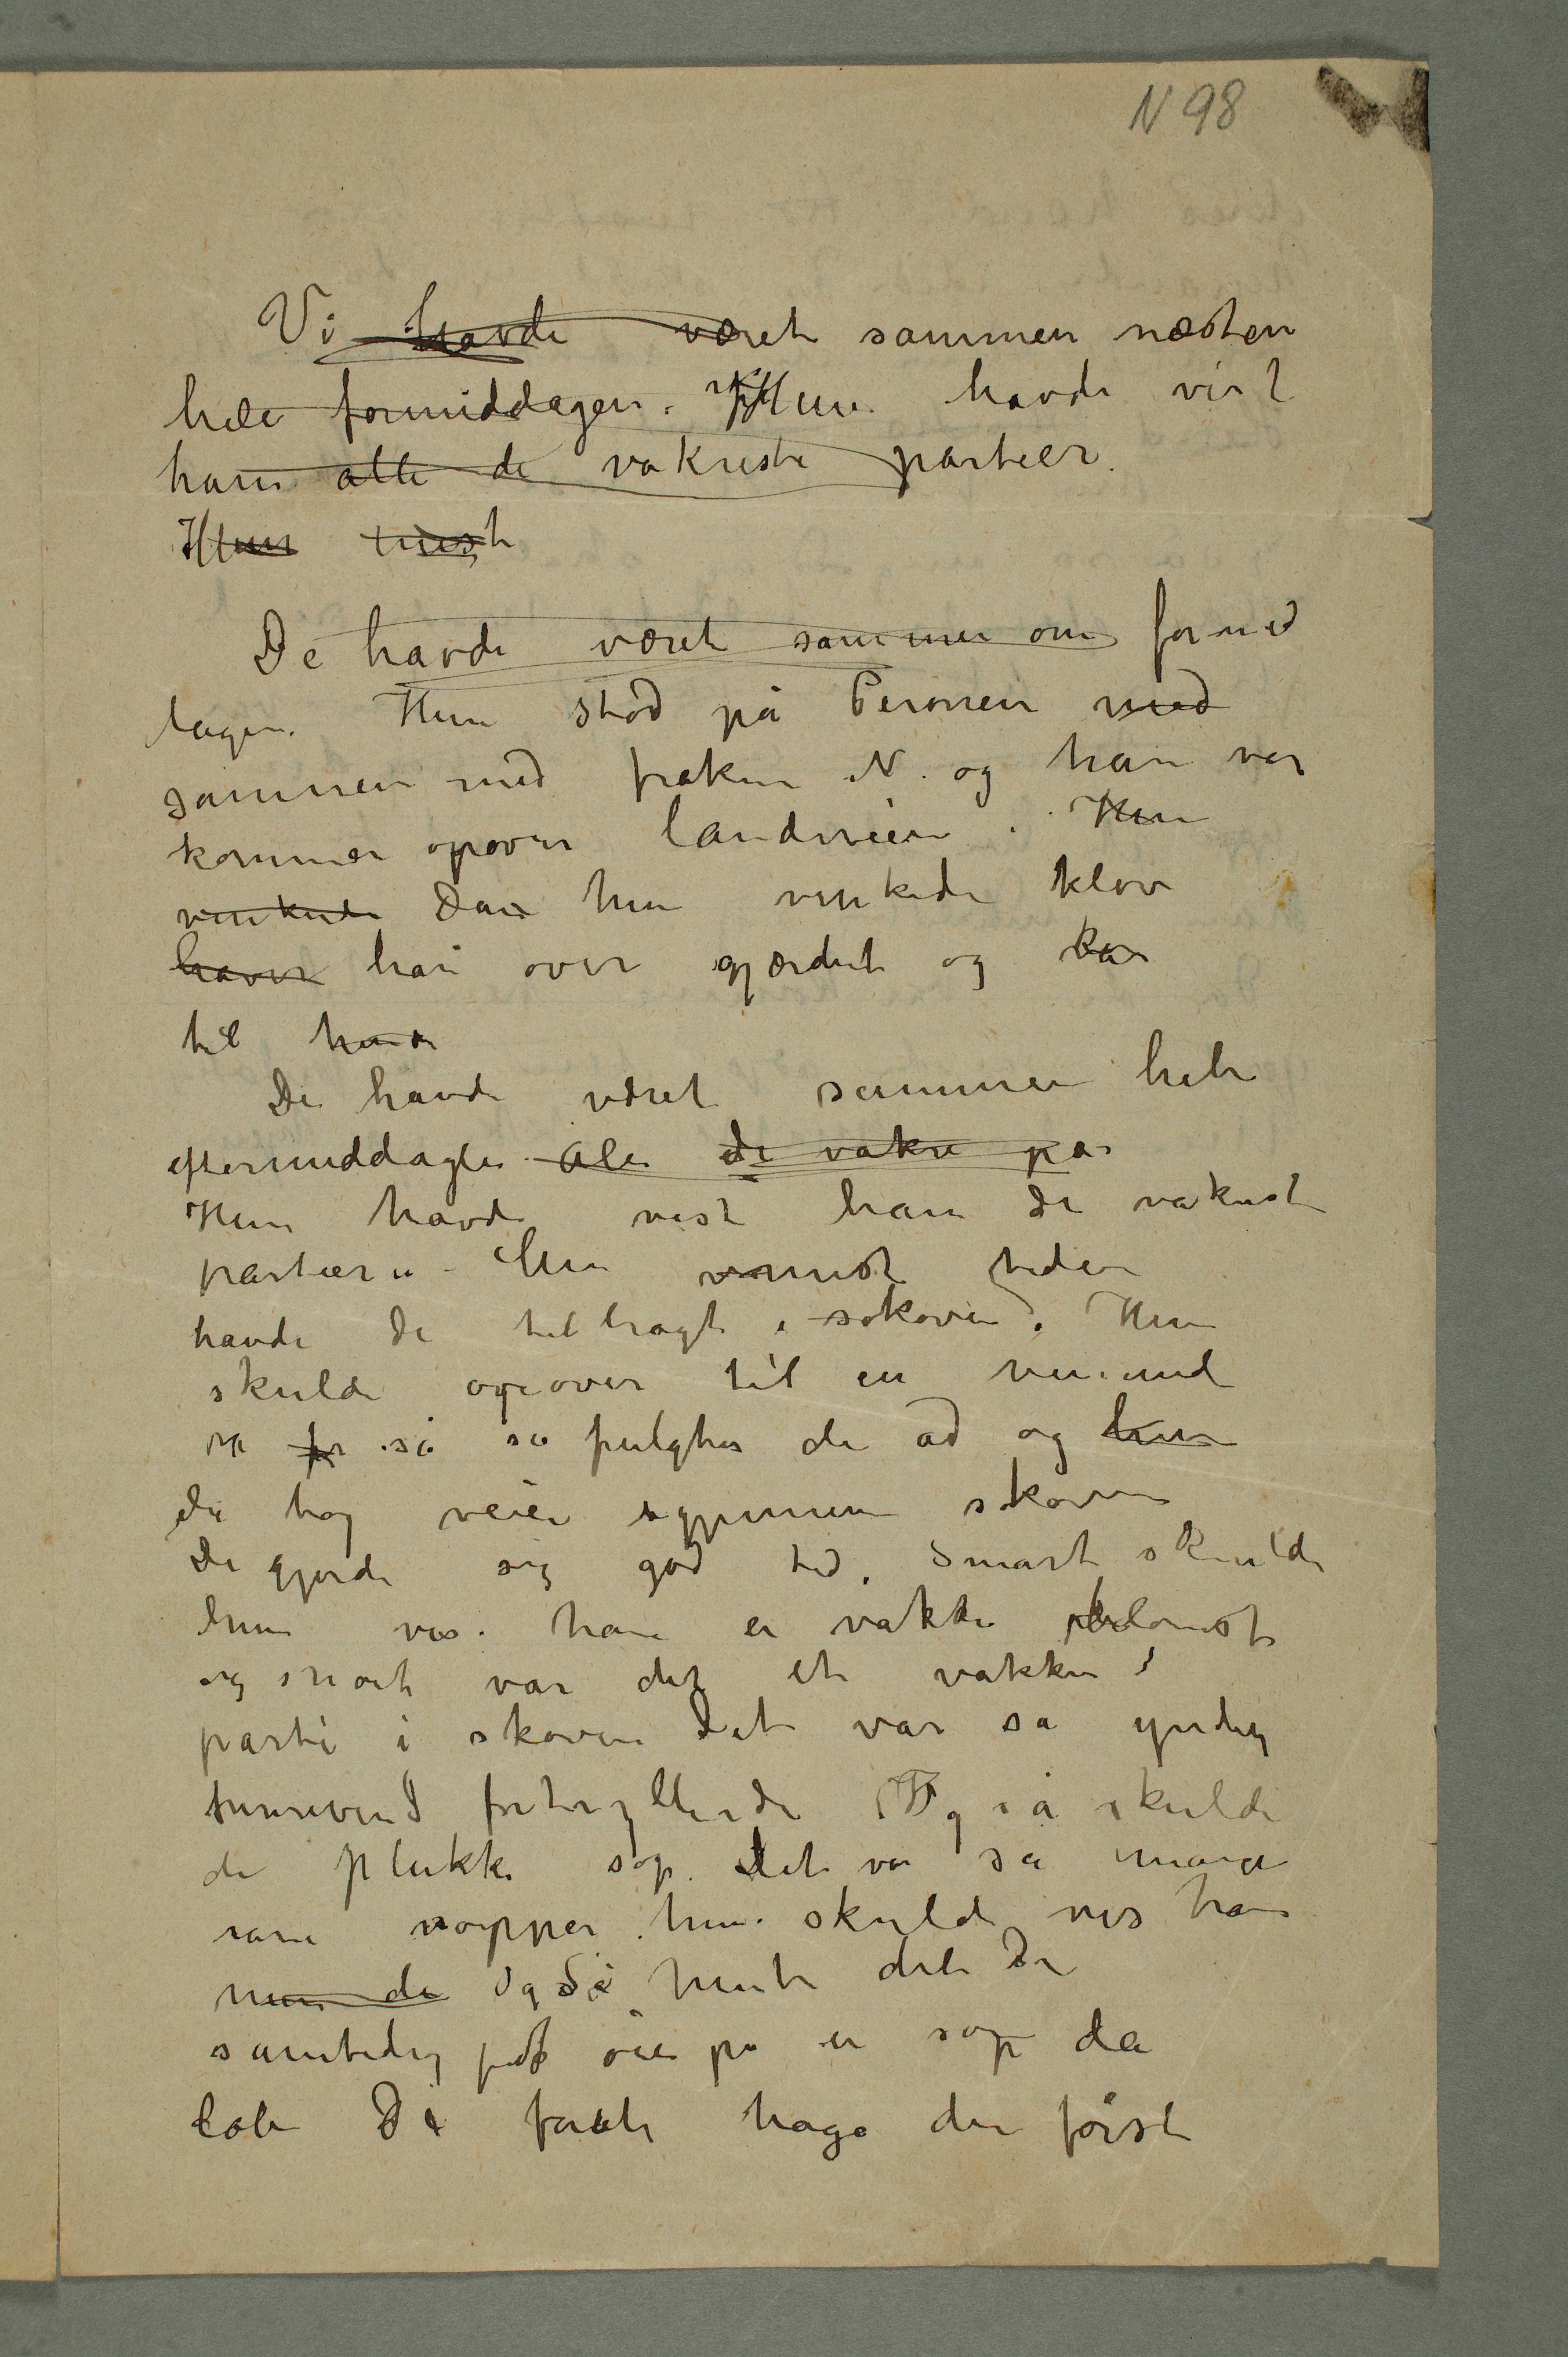 N 98
Vi havde været sammen næsten
hele formiddagen. Hun havde vist
ham alle de vakreste partier.
Hun
De havde været sammen om formid
dagen. Hun stod på Peronen med
sammen med frøken N. og han var
kommen opover landeveien. Hun
vinkede Da hun vinkede kløv
han over gjærdet og kom
til hende
De havde været sammen hele
eftermiddagen Alle de vakre par
Hun havde vist ham de vakreste
partierne – tiden
havde de tilbragt i skoven. Hun
skulde opover til en veninde
så så fulgtes de ad og hun
de tog veien igjennem skoven
De gjorde sig god tid. Snart skulde
hun vise ham en vakker blomst
og snart var det et vakkert
parti i skoven Det var så yndig
henrivend fortryllende Og så skulde
de plukke sop. Det var så mange
rare sopper hun skulde vise ham
men de Og så hente det De
samtidig fik øie på en sop da
løb De forat tage den først